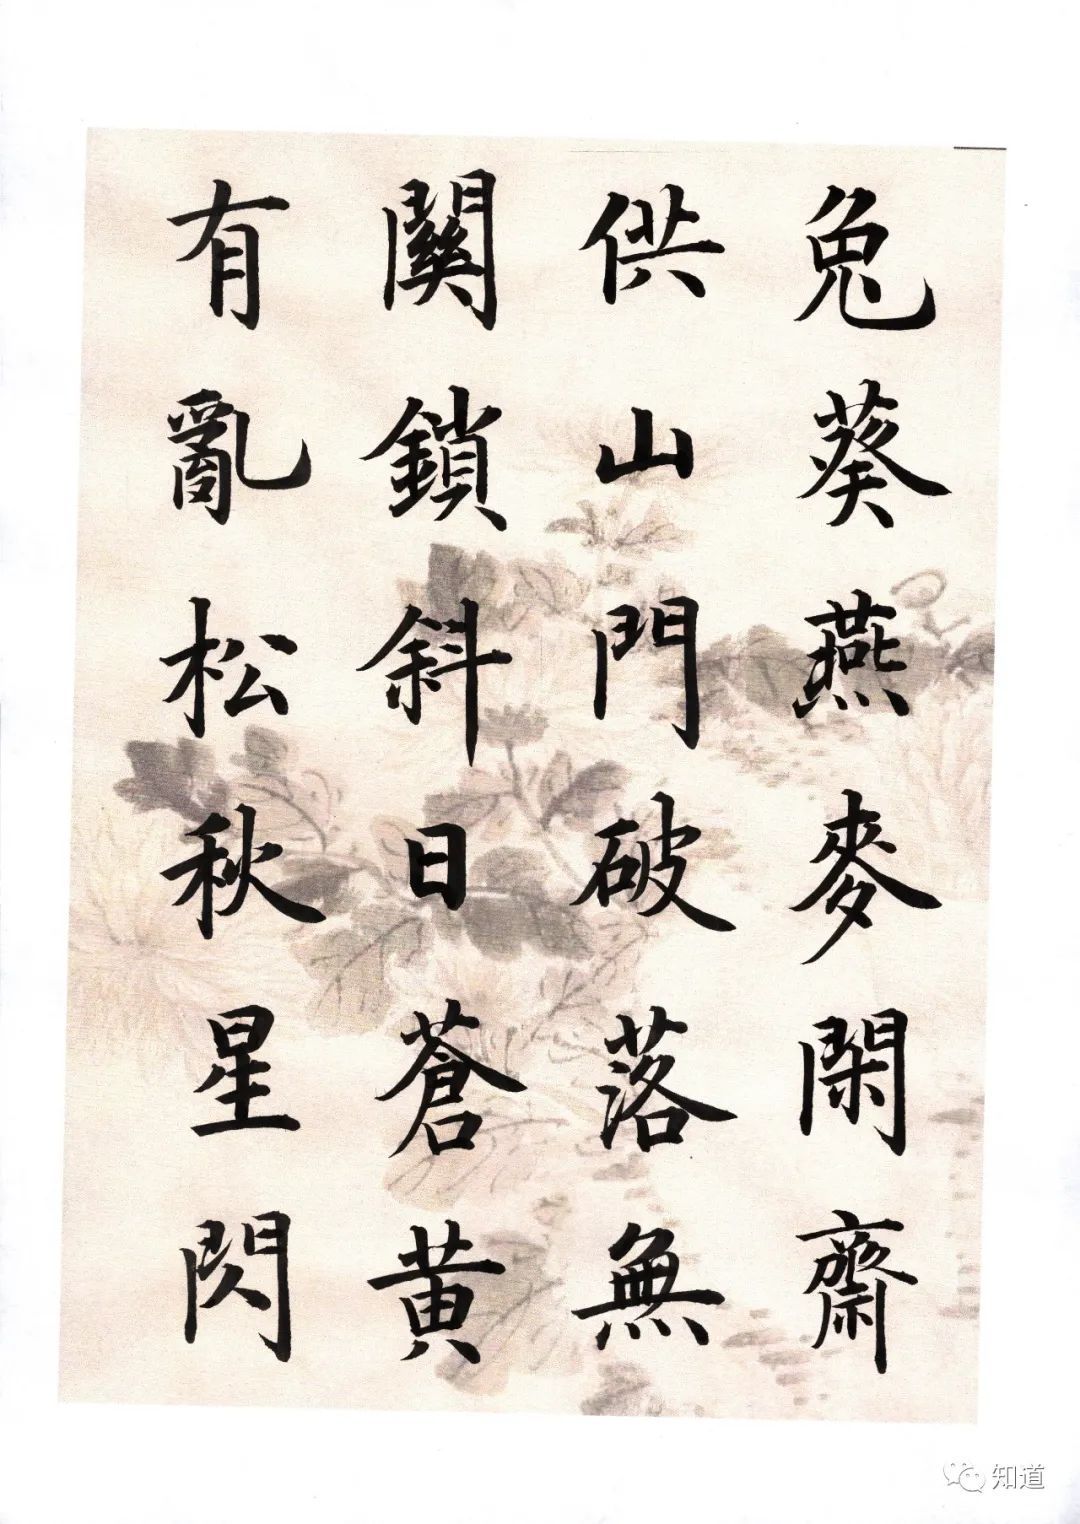 兔葵燕麥閑齋
供山門破落無
關鎖斜日蒼黃
有亂松秋星閃
知道